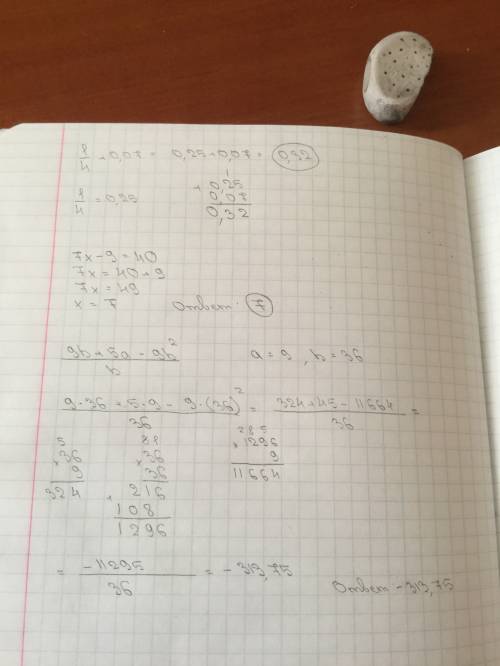 1/4 + 0,07 = 0,25 + 0,07 = 0,32
1/4 = 0,25
1
+ 0,25
0,07
0,32
7x - 9 = 40
7x = 40 + 9
7x = 49
x = 7 Ответ: 7
(9b + 5a - 9b²)/b a = 9, b = 36
(9·36 + 5·9 - 9·(36)²)/36 = (324 + 45 - 11664)/36 =
5
× 36
9
324
× 36
36
+ 216
108
1296
285
× 1296
9
11664
= -11295/36 = -313,75 Ответ -313,75